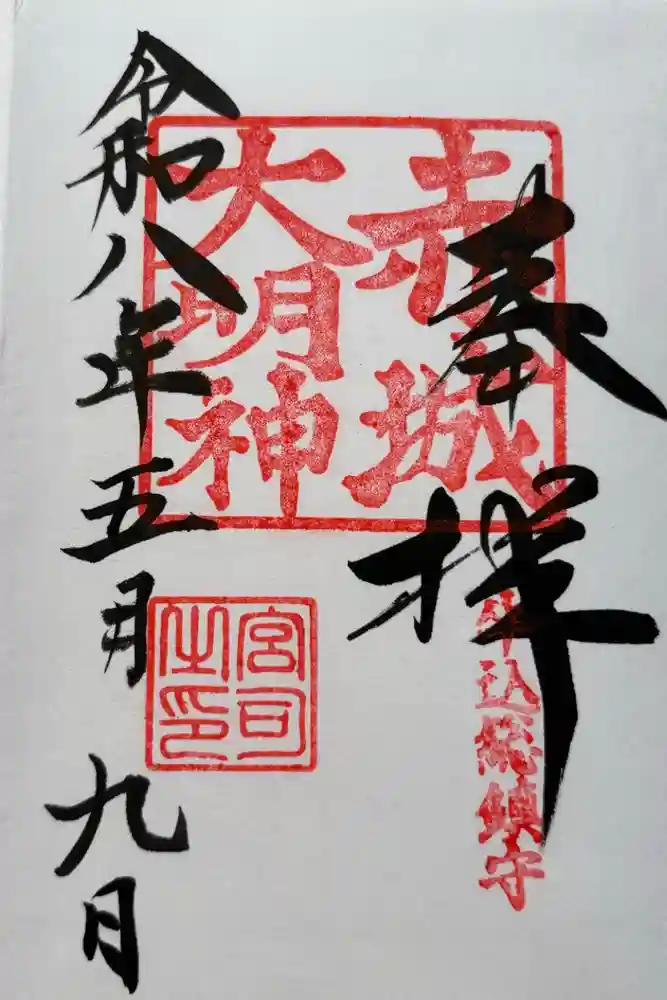 奉拝
赤城
大明神
牛込総鎮守
宮司
之印
令和八年五月九日